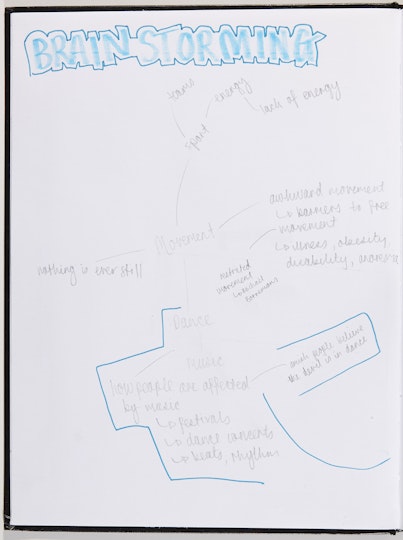 BRAINSTORMING
teams
energy
lack of energy
sport
awkward movement
↳ barriers to free
movement
↳ illness, obesity,
disability, anorexia
Movement
nothing is ever still
restricted
movement
Dance
music
how people are affected
by music
↳ festivals
↳ dance concerts
↳ beats, rhythm
people believe